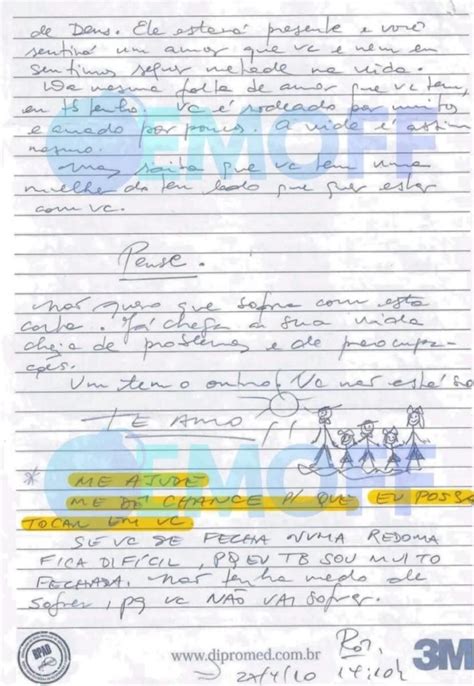 de Deus. Ele estará presente e você
sentirá um amor que vc e nem eu
sentimos sequer metade na vida.
Da mesma falta de amor que vc tem,
eu tb tenho. vc é rodeado por muitos
e amado por poucos. A vida é assim
mesmo.
Mas saiba que vc tem uma
mulher do teu lado que quer estar
com vc.
Pense.
Não quero que sofra com esta
carta. Já chega a sua vida
cheia de problemas e de preocupa-
ções.
Um tem o outro! Vc não está só
TE AMO!!
* ME AJUDE
ME DÊ CHANCE P/ QUE EU POSSA
TOCAR EM VC
SE VC SE FECHA NUMA REDOMA
FICA DIFÍCIL, PQ EU TB SOU MUITO
FECHADA. Não tenha medo de
sofrer, pq vc NÃO VAI sofrer.
www.dipromed.com.br
3M
27/4/10 14:10h
DEMOFF
DEMOFF